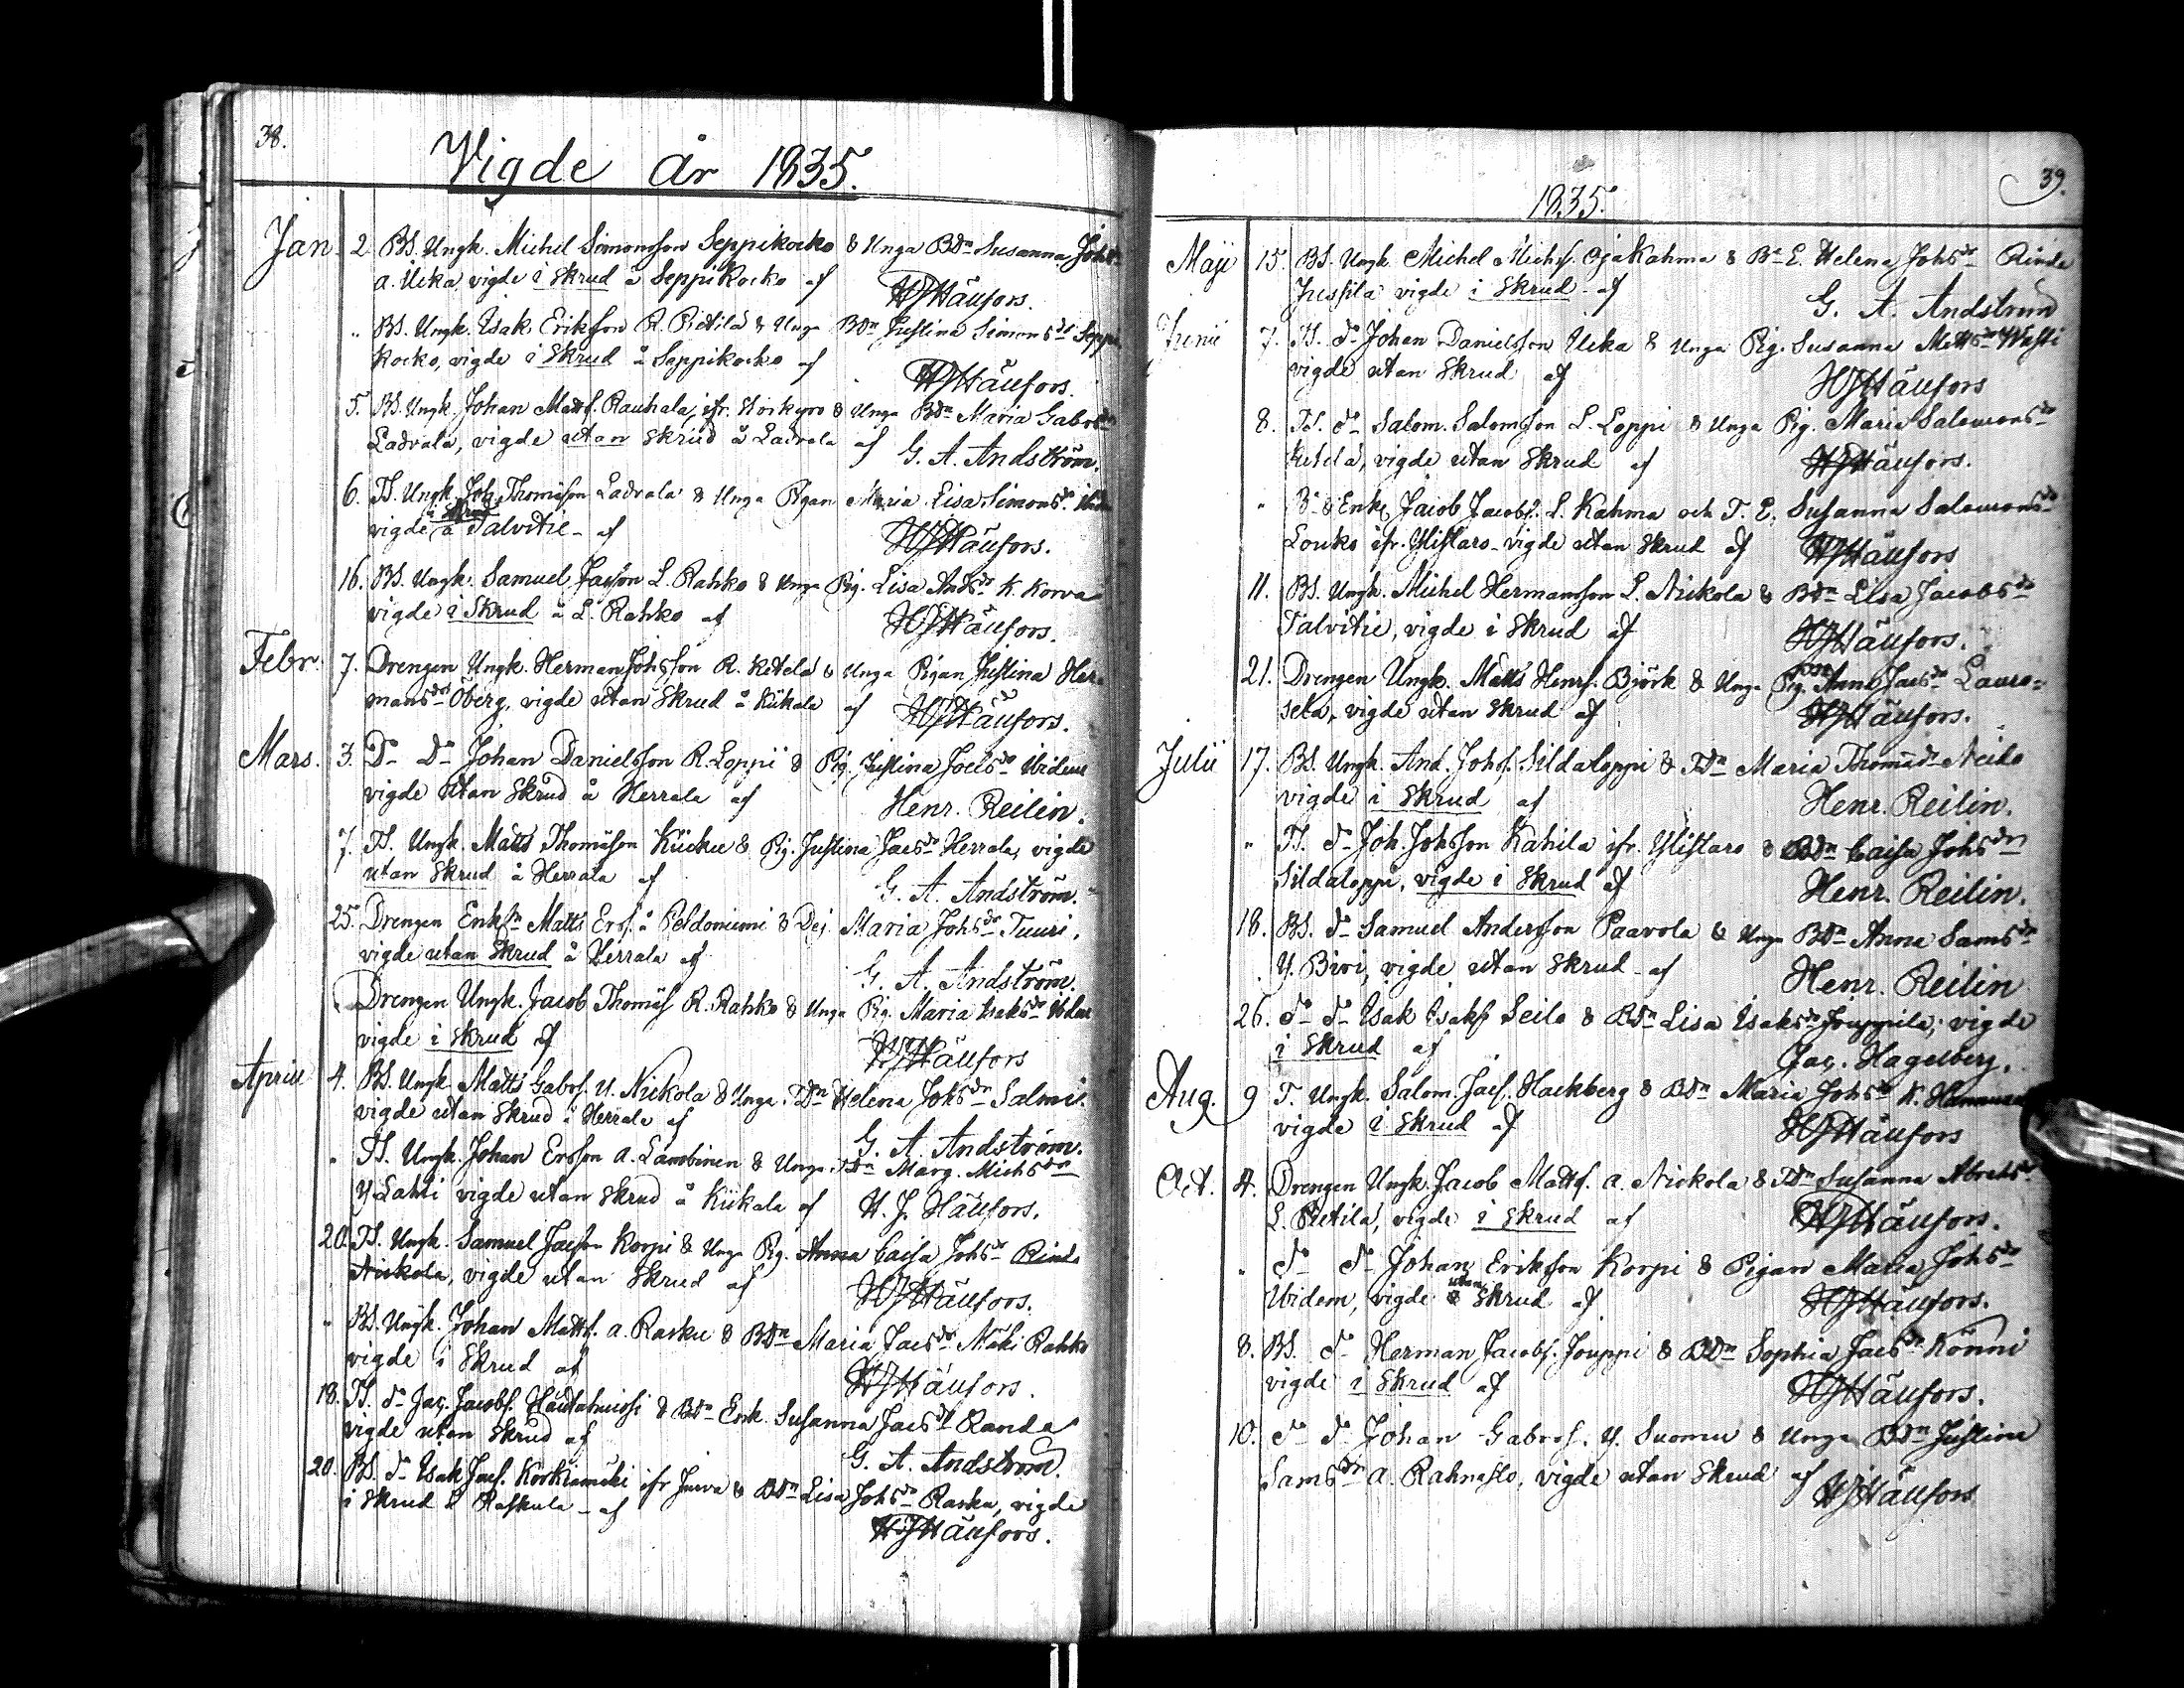 38.
Vigde år 1835.
Jan. 2 BS. Ungk. Michel Simonsson Seppikocko & Unga BDr Susanna Johsdr
a. Ucka, vigde i Skrud å Seppikocko af
HJHäufors.
" BS. Ungk. Isak Eriksson R. Pietilä & Unga BDr Justina Simonsdr Seppi
kocko, vigde i Skrud å Seppikocko af
HJHäufors.
5. BS. Ungk. Johan Mattss. Rauhala, ifr. Storkyro & Unga BDr Maria Gabrsdr
Ladvala, vigde utan Skrud å Ladvala af
G. A. Andström.
6. TS. Ungk. Joh. Thomasson Ladvala & Unga Pigan Maria Lisa Simonsdr
i Skrud
vigde å Talvitie - af
HJHäufors.
16. BS. Ungk. Samuel Jacsson L. Rahko & Unga Pig. Lisa Andsdr K. Korva
vigde i Skrud å L. Rahko af
HJHäufors.
Febr. 7. Drengen Ungk. Herman Johsson R. Ketola & Unga Pigan Justina Her-
mansdr Öberg, vigde utan Skrud å Kükala af
HJHäufors.
Mars. 3. Do Do Johan Danielsson R. Loppi & Pig. Justina Joelsdr Ibidem
vigde utan Skrud å Herrala af
Henr. Reilin.
7. TS. Ungk. Matts Thomasson Kücku & Pig. Justina Jacsdr Herrala, vigde
utan Skrud å Herrala af
G. A. Andström.
25. Drengen Enkln Matts Ers. å Peldoniemi & Dej. Maria Johsdr Tuuri,
vigde utan Skrud å Herrala af
G. A. Andström.
Drengen Ungk. Jacob Thomass R. Rahko & Unga Pig. Maria Isaksdr Ibdm
vigde i Skrud af
HJHäufors
Aprill 4. BS. Ungk. Matts Gabrs. Y. Nickola & Unga TDr Helena Johsdr Salmi.
vigde utan Skrud å Herrala af
G. A. Andström.
" TS. Ungk. Johan Ersson a. Lambinen & Unga TDr Marg. Michsdr
Y Lahti vigde utan Skrud å Kükala af
H. J. Häufors.
20. TS. Ungk. Samuel Jacsson Korpi & Unga Pig. Anna Caisa Johsdr Rinda
Nickola, vigde utan Skrud af
HJHäufors.
" BS. Ungk. Johan Mattss. a. Rasku & BDr Maria Jacsdr Mäki Rahko
vigde i Skrud af
HJHäufors.
18. TS. do Jac. Jacobs. Hautaluoisi & BDr Enk. Susanna Jacsdr Randa
vigde utan Skrud af
G. A. Andström.
20. BS. do Isak Jacs. Korkiamäki ifr Jurva & BDr Lisa Johsdr Raska, vigde
i Skrud å Raskula - af
HJHäufors.
39.
1835.
Maji 15. BS. Ungk. Michel Michs. Ojakahma & Br E. Helena Johsdr Rinda
Jussila vigde i Skrud - af
G. A. Andström
Junii 7. TS. do Johan Danielsson Ucka & Unga Pig. Susanna Mattsdr
vigde utan Skrud af
HJHäufors
8. TS. do Salom. Salomsson L. Loppi & Unga Pig. Maria Salomonsdr
Ketola, vigde utan Skrud af
HJHäufors.
" Enkl. Jacob Jacobs. L. Kahma och T. E. Susanna Salomonsdr
Louko ifr. Ylistaro - vigde utan Skrud af
HJHäufors
11. BS. Ungk. Michel Hermansson L. Nickola & BDr Lisa Jacobsdr
Talvitie, vigde i Skrud af
HJHäufors.
21. Drengen Ungk. Matts Henrs. Björk & Unga Pig. Anna Jacsdr Lauro=
sela, vigde utan Skrud af
HJHäufors.
Julii 17. BS. Ungk. And. Johs. Sildaloppi & TDr Maria Thomasdr Neido
vigde i Skrud af
Henr. Reilin.
" TS. do Joh. Johsson Kahila ifr. Ylistaro & BDr Caisa Johsdr
Sildaloppi, vigde i Skrud af
Henr. Reilin.
18. BS. do Samuel Andersson Paavola & Unga BDr Anna Samsdr
Y. Biri, vigde utan Skrud - af
Henr. Reilin
26. do do Isak Isaks Seilo & BDr Lisa Isaksdr Jouppila, vigde
i Skrud af
Jac. Hagelberg.
Aug. 9 T. Ungk. Salom. Jacs. Hackberg & BDr Maria Johsdr K.
vigde i Skrud af
HJHäufors
Oct. 4. Drengen Ungk. Jacob Mattss. a. Nickola & TDr Susanna Abrahsdr
L. Pietilä, vigde i Skrud af
HJHäufors.
" do do Johan Eriksson Korpi & Pigan Maria Johsdr
utan
Ibidem, vigde Skrud af
HJHäufors.
8. BS. do Herman Jacobs. Jouppi & BDr Sophia Jacsdr Könni
vigde i Skrud af
HJHäufors.
10. do do Johan Gabrs. Y. Suomu & Unga BDr Justina
Samsdr a. Rahnasto, vigde utan Skrud af
HJHäufors